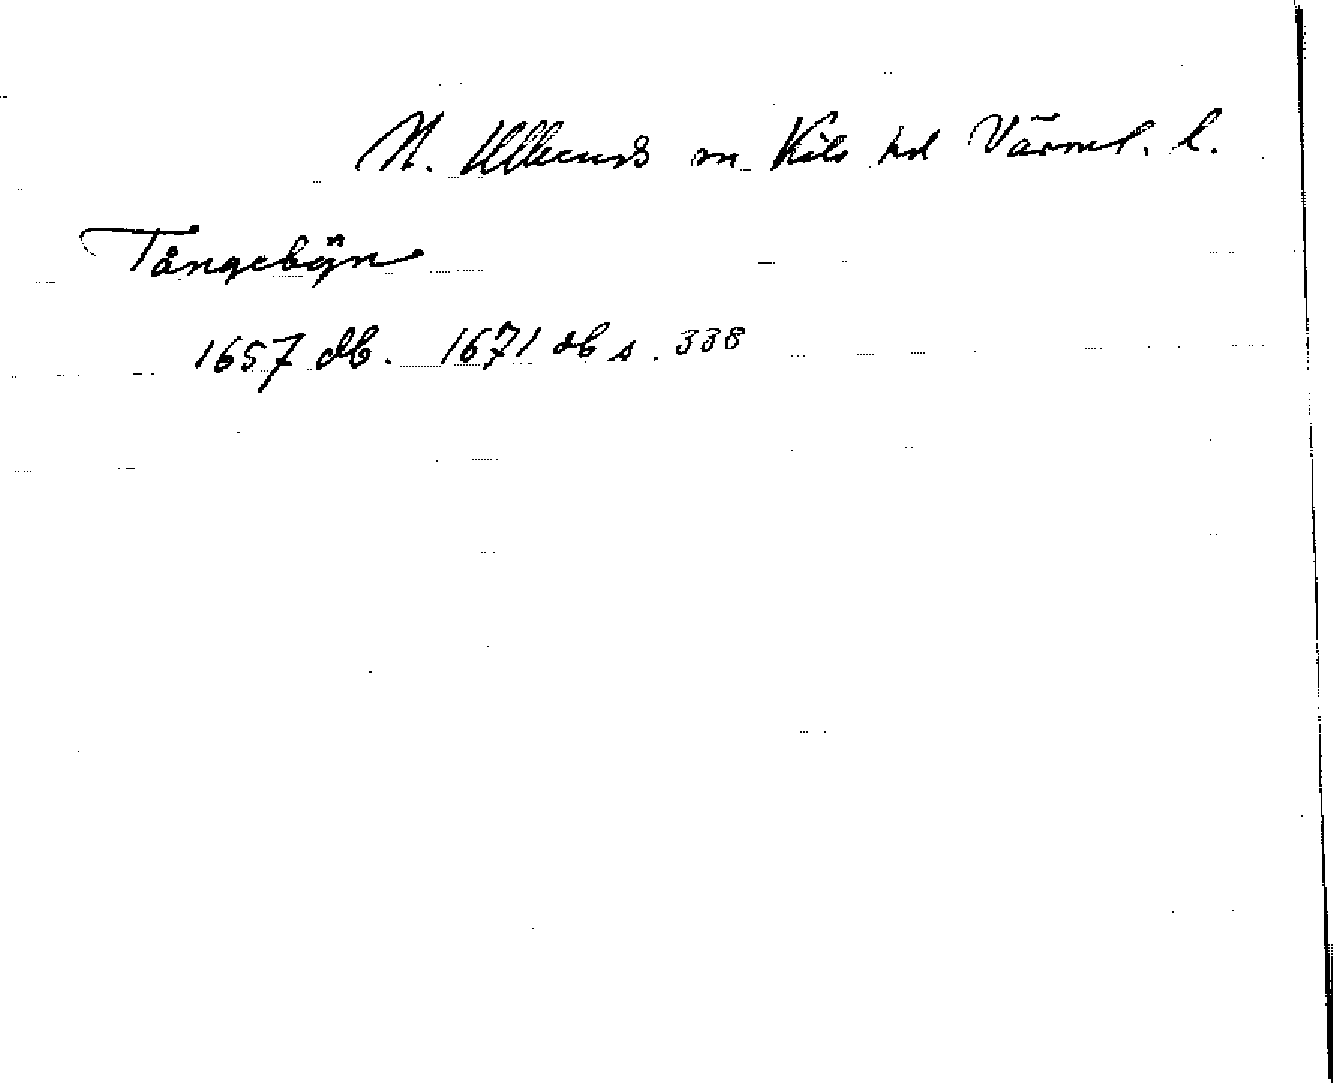 N. Ulleruds sn Kils hd Värml. l.
Tångebÿn
1657 db. 1671 db s. 338